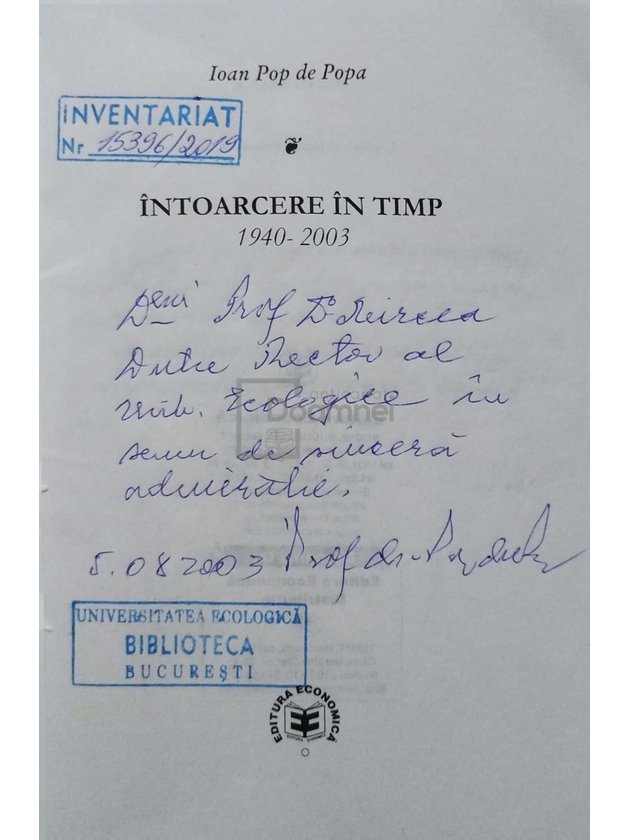 Ioan Pop de Popa
INVENTARIAT
Nr 15396/2019
ÎNTOARCERE ÎN TIMP
1940- 2003
Prof Dr Mircea
Duțu Rector al
Univ. Ecologice în
semn de sinceră
admirație.
5.08 2003 Prof dr.
Doamnei
UNIVERSITATEA ECOLOGICĂ
BIBLIOTECA
BUCUREȘTI
EDITURA ECONOMICĂ